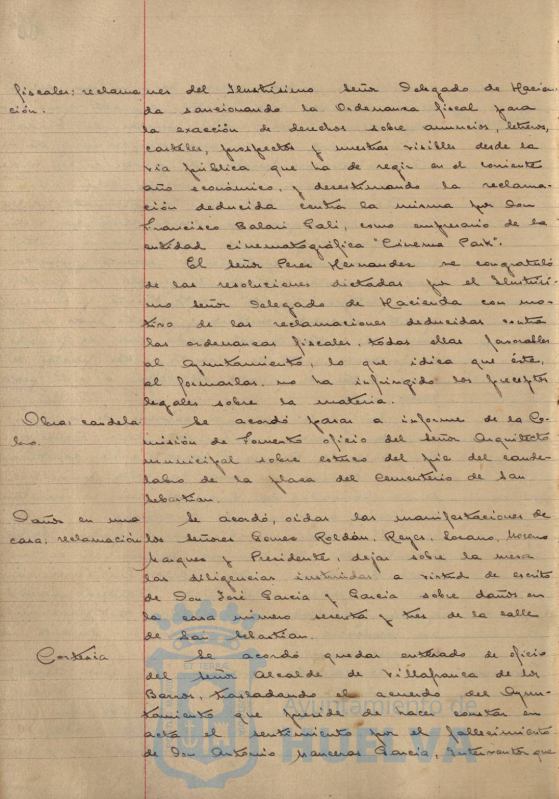 fiscales: reclama nes del Ilustrísimo Señor Delegado de Hacien-
ción. da sancionando la Ordenanza fiscal para
la exacción de derechos sobre anuncios, letreros,
carteles, prospectos y muestras visibles desde la
via pública que ha de regir en el corriente
año económico, y desestimando la reclama-
ción deducida contra la misma por Don
Francisco Balari Gali, como empresario de la
entidad cinematográfica "Cinema Park".
El Señor Perez Hernandez se congratuló
de las resoluciones dictadas por el Ilustrísi-
mo Señor Delegado de Hacienda con mo-
tivo de las reclamaciones deducidas contra
las ordenanzas fiscales, todas ellas favorables
al Ayuntamiento, lo que idica que éste,
al formarlas, no ha infringido los preceptos
legales sobre la materia.
Obras: candela Se acordó pasar a informe de la Co-
bro. misión de Fomento oficio del Señor Arquitecto
municipal sobre estuco del pie del cande-
labro de la plaza del Cementerio de San
Sebastian.
Daños en una Se acordó, oidas las manifestaciones de
casa: reclamación los Señores Gomez Roldán, Reyes, Lozano, Moreno
Marquez y Presidente, dejar sobre la mesa
las diligencias instruidas a virtud de escrito
de Don José Garcia y Garcia sobre daños en
la casa número sesenta y tres de la calle
de San Sebastian.
Cortesia Se acordó quedar enterado de oficio
del Señor Alcalde de Villafranca de los
Barros, trasladando el acuerdo del Ayun-
tamiento que preside de hacer constar en
acta el sentimiento por el fallecimiento
de Don Antonio Manceras Garcia, Interventor que
Ayuntamiento de
HUELVA